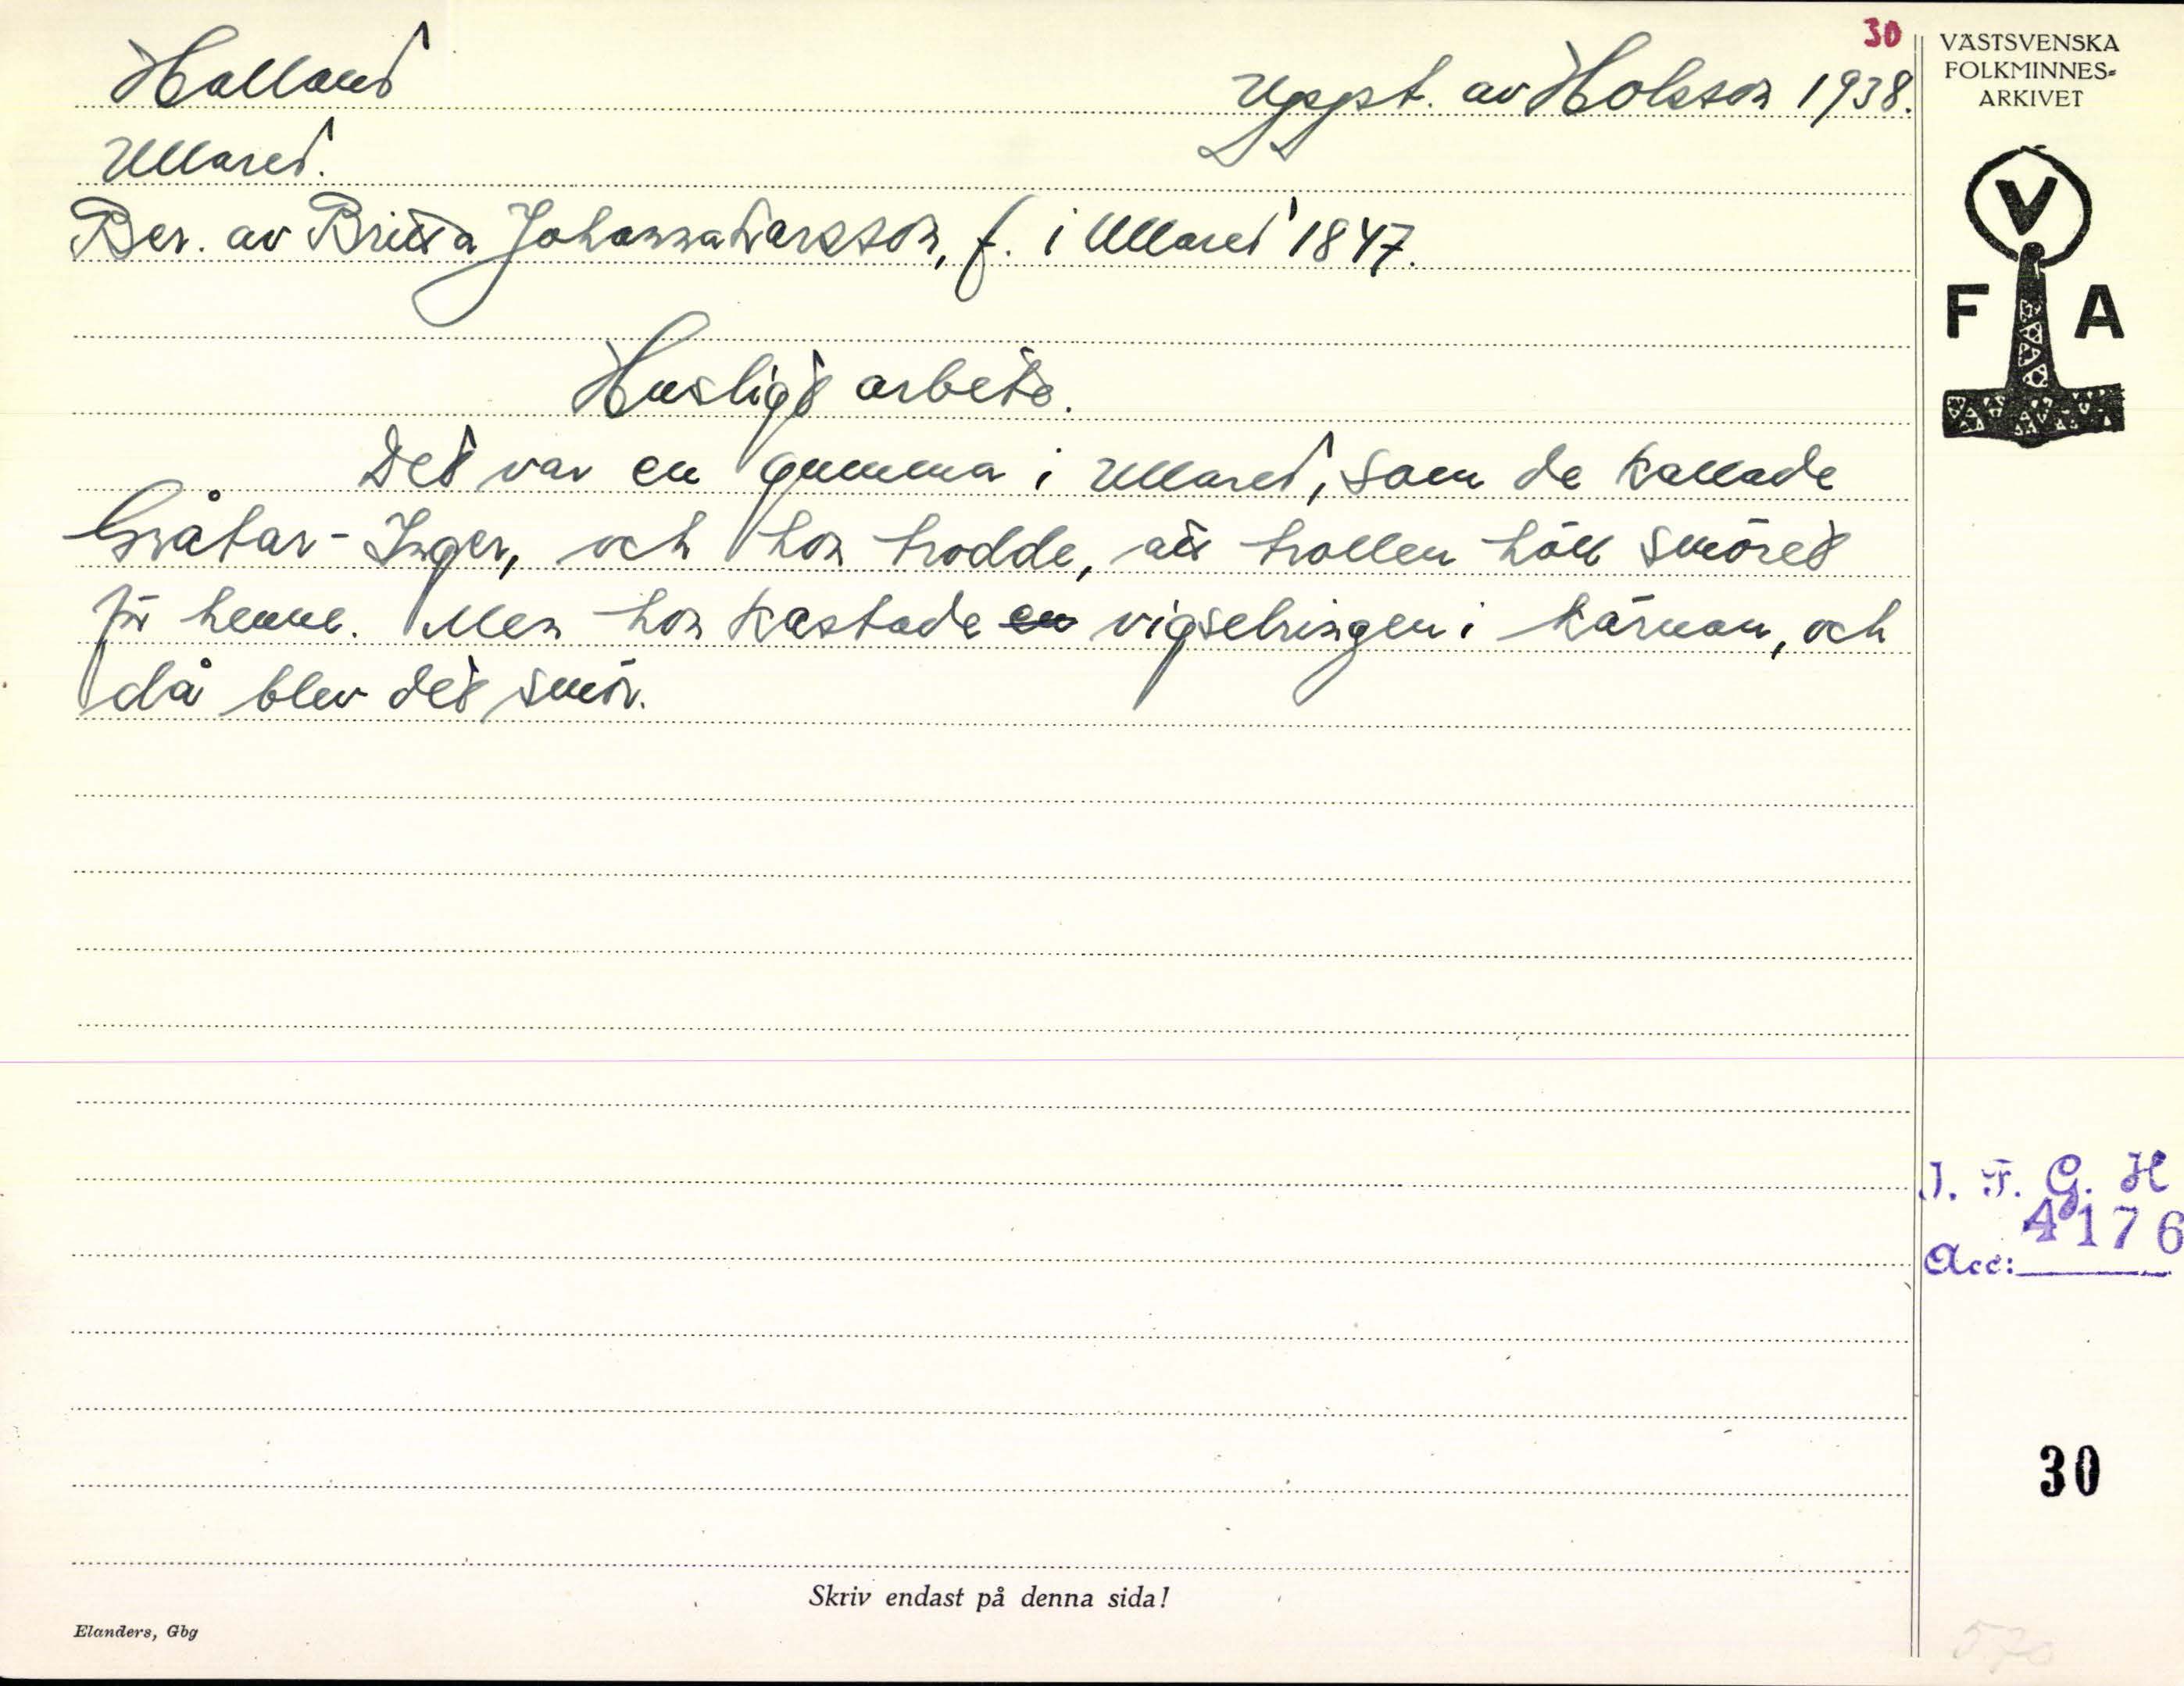 30
Halland
Uppt. av Holsson 1938.
Ullared.
Ber. av Britta Johanna Larsson, f. i Ullared 1847.
Husligt arbete.
Det var en gumma i Ullared, som de kallade
Gråtar-Inger, och hon trodde, att trollen höll smöret
för henne. Men hon kastade en vigselringen i kärnan, och
då blev det smör.
VÄSTSVENSKA
FOLKMINNES-
ARKIVET
V
F A
I. F. G. H
4176
Acc:
30
Skriv endast på denna sida!
Elanders, Gbg
570